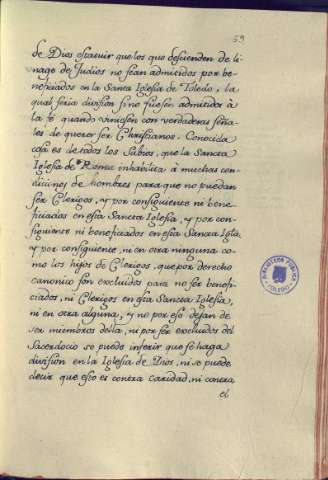 59
de Dios estatuir que los que descienden de li-
nage de Judios no sean admitidos por be-
neficiados en la Santa Iglesia de Toledo, la
qual seria division si no fuesen admitidos à
la fe quando viniesen con verdaderas seña-
les de querer ser Christianos. Conocida
cosa es de todos los Sabios, que la Sancta
Iglesia de Roma inhabilita à muchas con-
diciones de hombres para que no puedan
ser Clerigos, y por consiguiente ni bene-
ficiados en esta Sancta Iglesia, y por con-
siguiente ni beneficiados en esta Sancta Igla.
y por consiguiente, ni en otra ninguna co-
mo los hijos de Clerigos, que por derecho
canonico son excluidos para no ser benefi-
ciados, ni Clerigos en esta Sancta Iglesia,
ni en otra alguna, y no por eso dejan de
ser miembros della, ni por ser excluidos del
Sacerdocio se puede inferir que se haga
division en la Iglesia de Dios, ni se puede
decir que eso es contra caridad, ni contra
el
BIBLIOTECA PUBLICA
TOLEDO